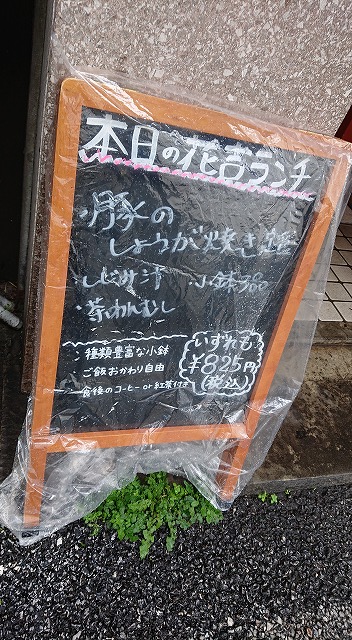 本日の花吉ランチ
・豚の
しょうが焼き
・しじみ汁 小鉢3品
・茶わんむし
・種類豊富な小鉢
ご飯おかわり自由
食後のコーヒー or 紅茶付き
いずれも
¥825円
(税込)